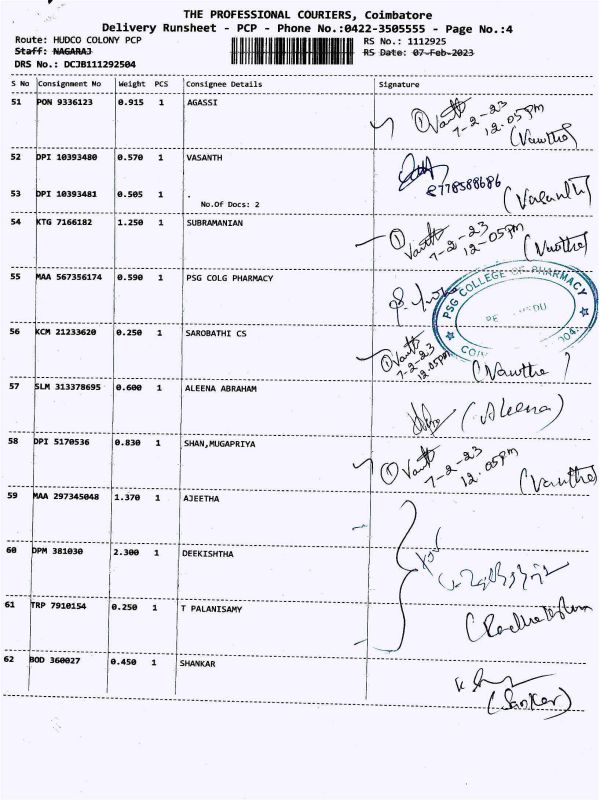 THE PROFESSIONAL COURIERS, Coimbatore
Delivery Runsheet - PCP - Phone No.:0422-3505555 - Page No.:4
Route: HUDCO COLONY PCP
RS No.: 1112925
Staff: NAGARAJ
RS Date: 07-Feb-2023
DRS No.: DCJB111292504
S No Consignment No Weight PCS Consignee Details Signature
51 PON 9336123 0.915 1 AGASSI
① Vanth
7-2-23
12.05pm
(Vawtha)
52 DPI 10393480 0.570 1 VASANTH
8778588686
53 DPI 10393481 0.505 1 .
(Vasanth)
No.Of Docs: 2
54 KTG 7166182 1.250 1 SUBRAMANIAN
① Vanth
7-2-23
12-05pm
(Vawtha)
55 MAA 567356174 0.590 1 PSG COLG PHARMACY
PSG COLLEGE OF PHARMACY
56 KCM 21233620 0.250 1 SAROBATHI CS
① Vanth
7-2-23
12.05pm
(Vawtha)
57 SLM 313378695 0.600 1 ALEENA ABRAHAM
(Aleena)
58 DPI 5170536 0.830 1 SHAN,MUGAPRIYA
① Vanth
7-2-23
12.05pm
(Vawtha)
59 MAA 297345048 1.370 1 AJEETHA
60 DPM 381030 2.300 1 DEEKISHTHA
61 TRP 7910154 0.250 1 T PALANISAMY
62 BOD 360027 0.450 1 SHANKAR
(Sanker)